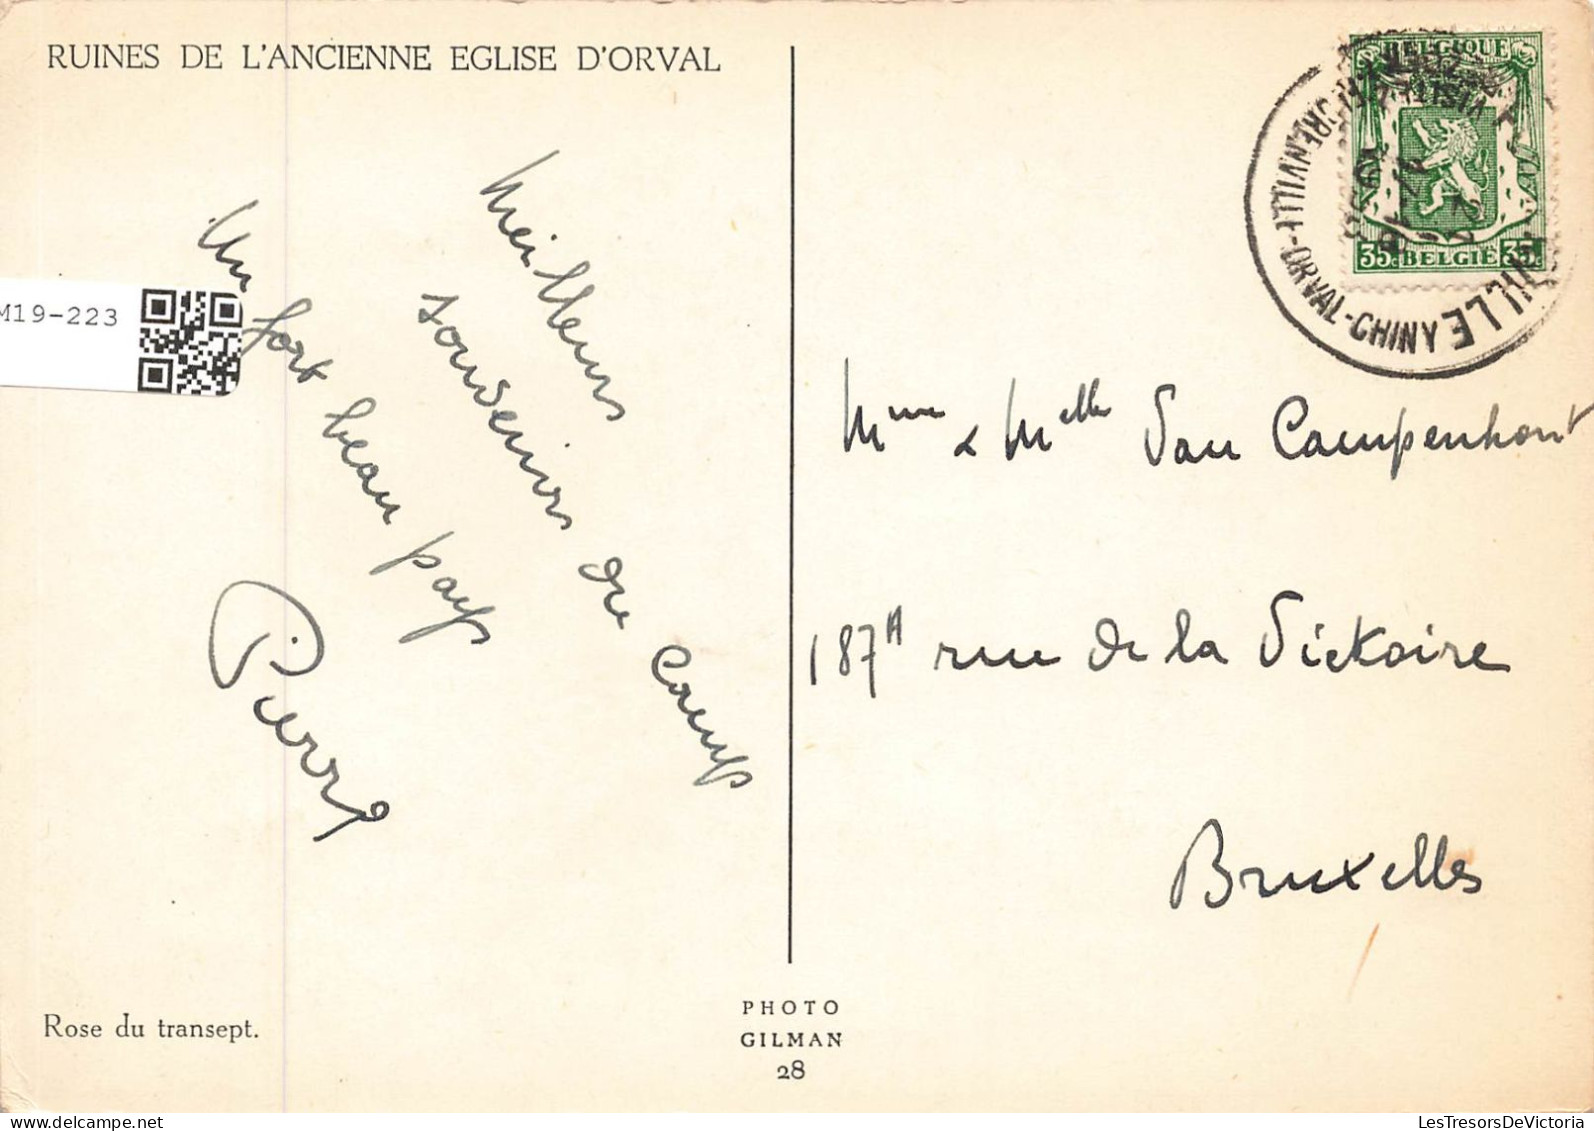 RUINES DE L'ANCIENNE EGLISE D'ORVAL
Meilleurs
souvenirs du camp
Un fort beau pays
Pierre
M19-223
Rose du transept.
PHOTO
GILMAN
28
BELGIQUE
35c BELGIË 35c
FLORENVILLE-ORVAL-CHINY
Mme & Melle Van Campenhout
187A rue de la Victoire
Bruxelles
LesTresorsDeVictoria